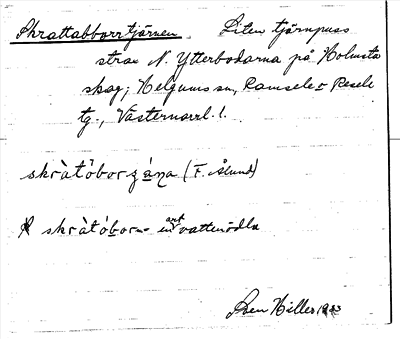 Skrattabborrtjärnen. Liten tjärnpuss
strax N. Ytterbodarna på Holmsta
skog; Helgums sn, Ramsele o Resele
tg., Västernorrl. l.
skràtòborzáṇa (F. Ålund)
skràtóbor- en art vattenödla
Sven Hiller 1933